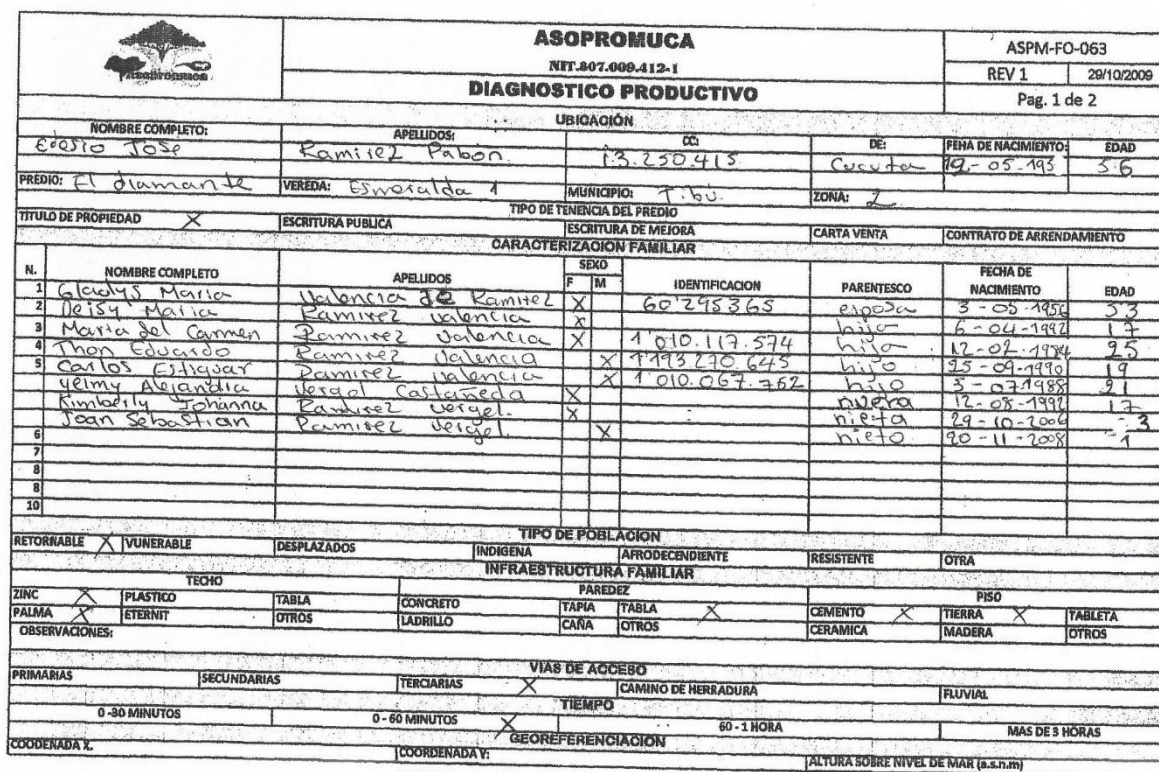 ASOPROMUCA
NIT.807.009.412-1
DIAGNOSTICO PRODUCTIVO
ASPM-FO-063
REV 1 29/10/2009
Pag. 1 de 2
Asopromuca
UBICACIÓN
NOMBRE COMPLETO: APELLIDOS: CC: DE: FEHA DE NACIMIENTO: EDAD
Edesio José Ramirez Pabón 13.250.415 Cucuta 19-05-195 56
PREDIO: El diamante VEREDA: Esmeralda 1 MUNICIPIO: Tibú ZONA: 2
TIPO DE TENENCIA DEL PREDIO
TITULO DE PROPIEDAD X ESCRITURA PUBLICA ESCRITURA DE MEJORA CARTA VENTA CONTRATO DE ARRENDAMIENTO
CARACTERIZACION FAMILIAR
N. NOMBRE COMPLETO APELLIDOS SEXO F M IDENTIFICACION PARENTESCO FECHA DE NACIMIENTO EDAD
1 Gladys Maria Valencia de Ramirez X 60'295365 esposa 3-05-1956 53
2 Deisy Maria Ramirez Valencia X hija 6-04-1992 17
3 Maria del Carmen Ramirez Valencia X 1'010.117.574 hija 12-02-1984 25
4 Jhon Eduardo Ramirez Valencia X 1'193.270.645 hijo 25-09-1990 19
5 Carlos Ramirez Valencia X 1'010.067.762 hijo 5-07-1988 21
Yelmy Alejandra Vergel Castañeda X nuera 12-08-1992 17
Kimberly Johanna Ramirez Vergel. X nieta 29-10-2006 3
6 Joan Sebastian Ramirez Vergel. X nieto 20-11-2008 1
7
8
8
10
TIPO DE POBLACION
RETORNABLE X VUNERABLE DESPLAZADOS INDIGENA AFRODECENDIENTE RESISTENTE OTRA
INFRAESTRUCTURA FAMILIAR
TECHO PAREDEZ PISO
ZINC X PLASTICO TABLA CONCRETO TAPIA TABLA X CEMENTO X TIERRA X TABLETA
PALMA X ETERNIT OTROS LADRILLO CAÑA OTROS CERAMICA MADERA OTROS
OBSERVACIONES:
VIAS DE ACCESO
PRIMARIAS SECUNDARIAS TERCIARIAS X CAMINO DE HERRADURA FLUVIAL
TIEMPO
0 -30 MINUTOS 0 - 60 MINUTOS X 60 - 1 HORA MAS DE 3 HORAS
GEOREFERENCIACION
COODENADA X. COORDENADA Y: ALTURA SOBRE NIVEL DE MAR (a.s.n.m)